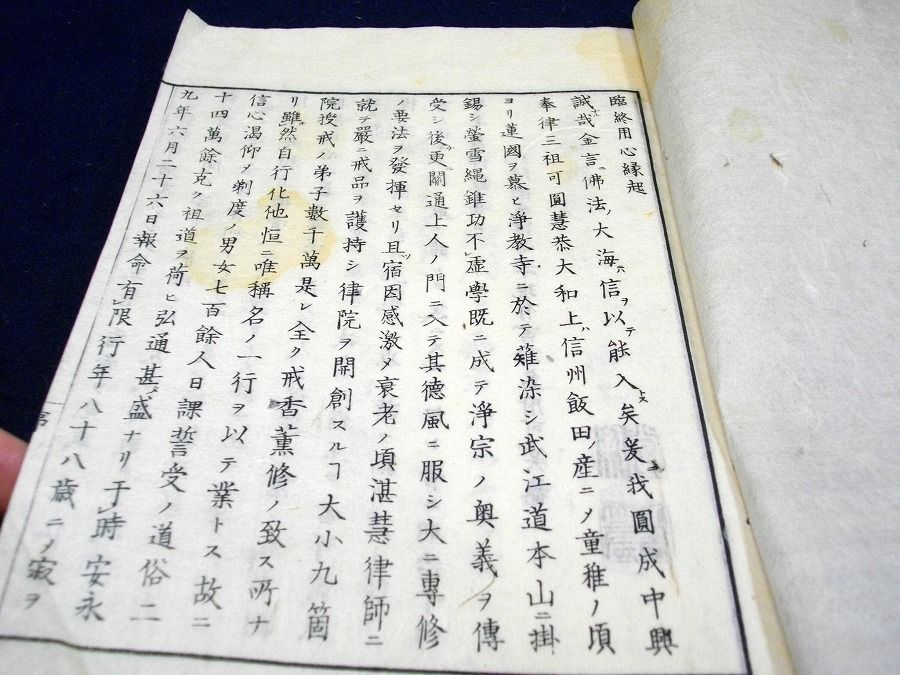 臨終用心縁起
誠哉金言佛法ノ大海ハ信ヲ以テ能入トス矣爰ニ我圓成中興
奉律三祖可圓慧恭大和上ハ信州飯田ノ産ニメ童稚ノ頃
ヨリ蓮國ヲ慕ヒ淨教寺ニ於テ薙染シ武江道本山ニ掛
錫シ螢雪繩錐功不レ虚學既ニ成テ淨宗ノ奥義ヲ傳
受シ後更ニ關通上人ノ門ニ入テ其德風ニ服シ大ニ專修
ノ要法ヲ發揮セリ且ツ宿因感激メ衰老ノ頃湛慧律師ニ
就テ嚴ニ戒品ヲ護持シ律院ヲ開創スルヿ大小九箇
院授戒ノ弟子數千萬是レ全ク戒香薫修ノ致ス所ナ
リ雖レ然自行化他恒ニ唯稱名ノ一行ヲ以テ業トス故ニ
信心渴仰メ剃度ノ男女七百餘人日課誓受ノ道俗二
十四萬餘克ク祖道ヲ荷ヒ弘通甚タ盛ナリ于レ時安永
九年六月二十六日報命有レ限行年八十八歳ニメ寂ヲ